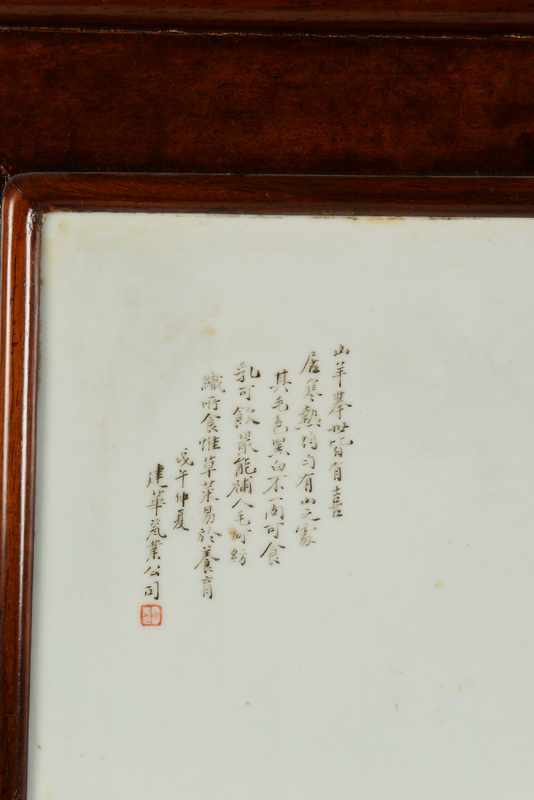 山羊舉世皆有喜
居寒熱均勻有山之家
其毛色黑白不一肉可食
乳可飲最能補人毛可紡
織所食惟草菜易於養育
戊午仲夏
建華瓷業公司